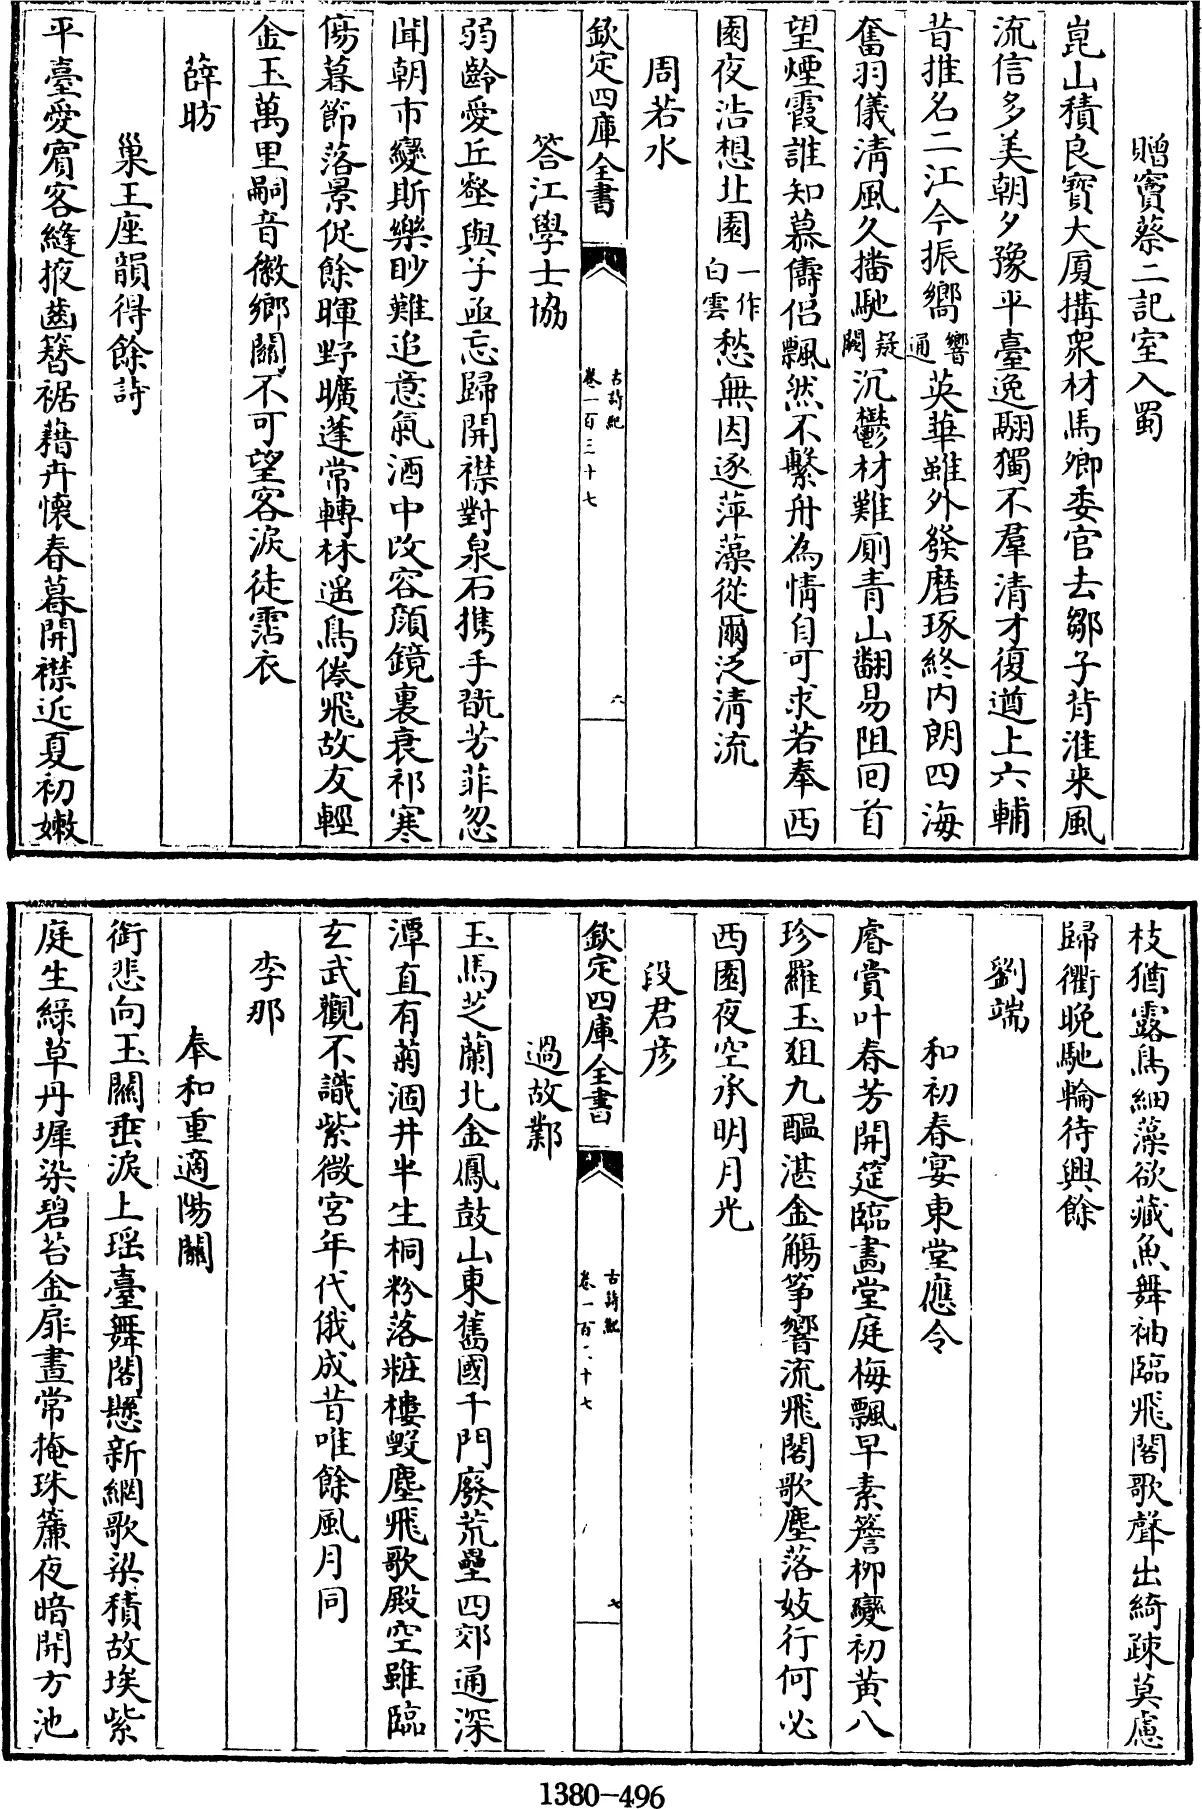 贈竇蔡二記室入蜀
崑山積良寶大厦搆衆材馬卿委官去鄒子背淮來風
流信多美朝夕豫平臺逸翮獨不羣清才復遒上六輔
昔推名二江今振嚮響通英華雖外發磨琢終内朗四海
奮羽儀清風久播馳疑闕沉鬱材難厠青山翻易阻回首
望煙霞誰知慕儔侣飄然不繫舟為情自可求若奉西
園夜浩想北園一作白雲愁無因逐萍藻從爾泛清流
周若水
欽定四庫全書
古詩紀
卷一百三十七
六
答江學士協
弱齡愛丘壑與子亟忘歸開襟對泉石携手翫芳菲忽
聞朝市變斯樂眇難追意氣酒中改容顔鏡裏衰祁寒
傷暮節落景促餘暉野曠蓬常轉林遥鳥倦飛故友輕
金玉萬里嗣音徽鄉關不可望客淚徒霑衣
薛昉
巢王座韻得餘詩
平臺愛賓客縫掖齒簪裾藉卉懷春暮開襟近夏初嫩
枝猶露鳥細藻欲藏魚舞袖臨飛閣歌聲出綺疎莫慮
歸衢晚馳輪待興餘
劉端
和初春宴東堂應令
睿賞叶春芳開筵臨畫堂庭梅飄早素簷柳變初黄八
珍羅玉俎九醖湛金觴筝響流飛閣歌塵落妓行何必
西園夜空承明月光
段君彦
欽定四庫全書
古詩紀
卷一百二十七
七
過故鄴
玉馬芝蘭北金鳳鼓山東舊國千門廢荒壘四郊通深
潭直有菊涸井半生桐粉落粧樓毁塵飛歌殿空雖臨
玄武觀不識紫微宮年代俄成昔唯餘風月同
李那
奉和重適陽關
銜悲向玉關垂淚上瑶臺舞閣懸新網歌梁積故埃紫
庭生綠草丹墀染碧苔金扉晝常掩珠簾夜暗開方池
1380-496